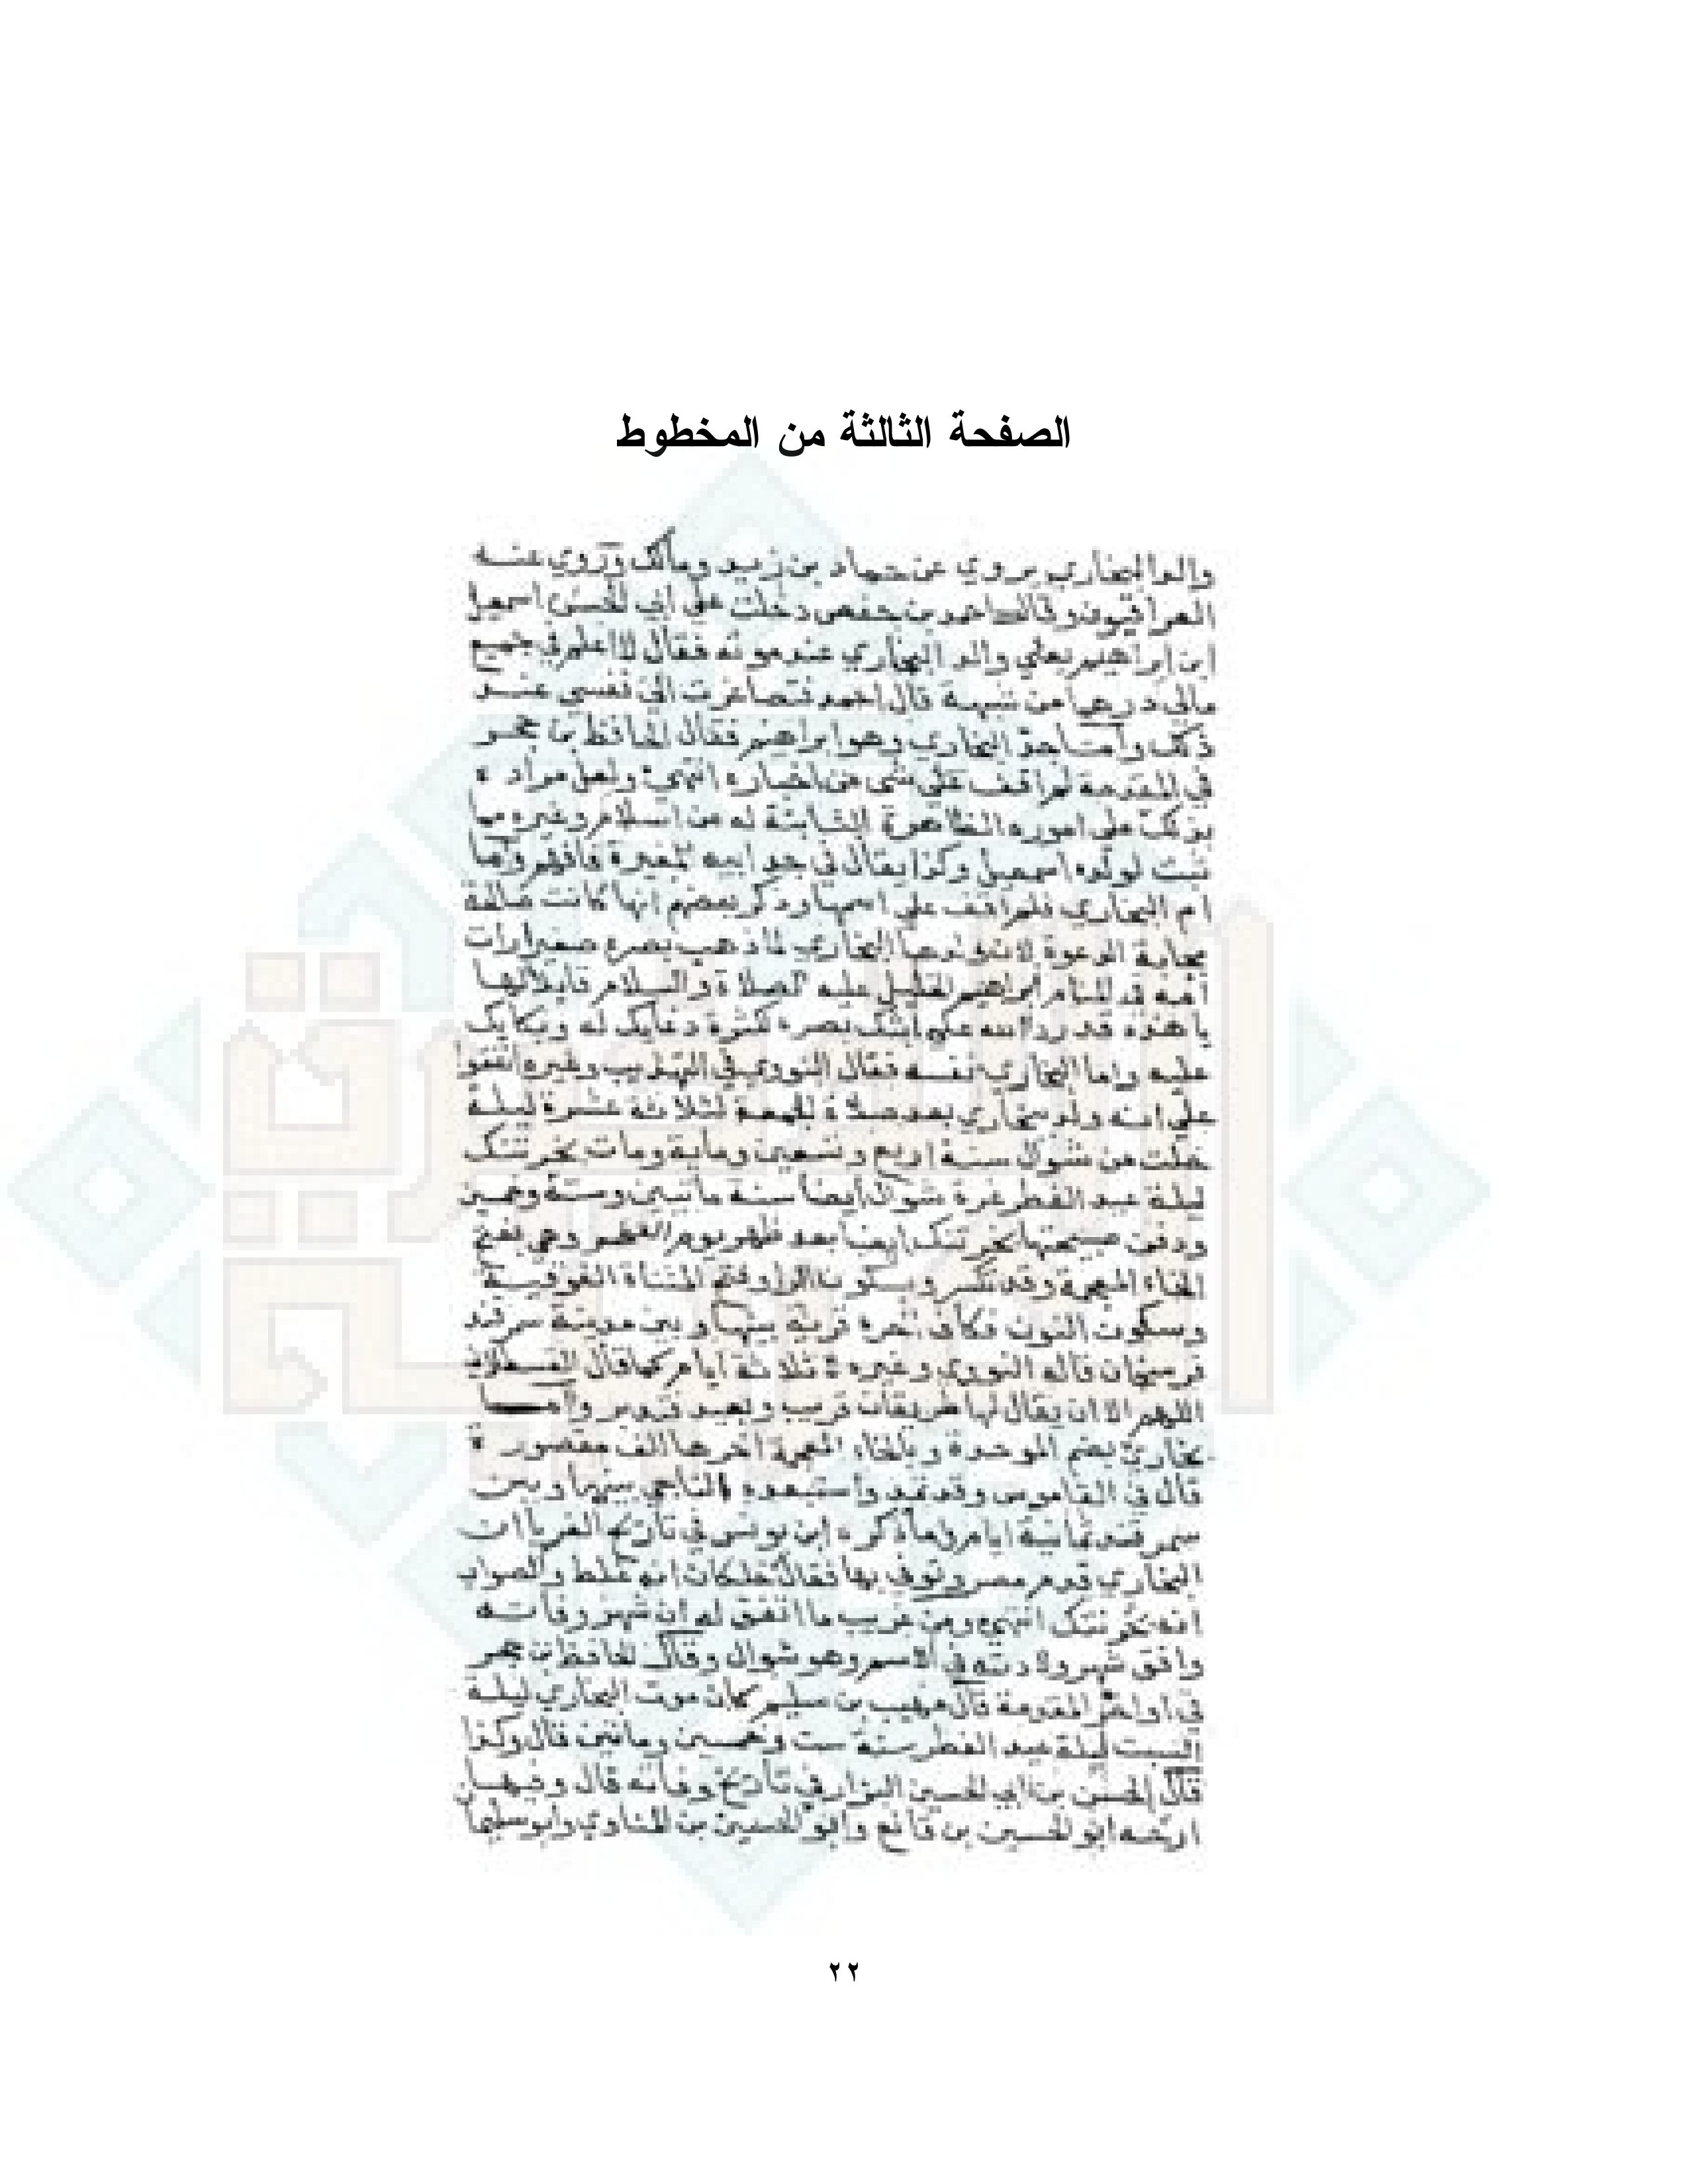 الصفحة الثالثة من المخطوط
والد البخاري يروي عن حماد بن زيد ومالك وروي عنه
العراقيون وقال احمد بن حفص دخلت على ابي الحسن اسمعيل
ابن ابراهيم يعني والد البخاري عند موته فقال لا اعلم في جميع
مالي درهما من شبهة قال احمد فتصاغرت الي نفسي عند
ذلك وأما جد البخاري وهو ابراهيم فقال الحافظ بن حجر
في المقدمة لم اقف على شي من اخباره انتهى ولعل مراده
بذلك على اموره الظاهرة الثابتة له من اسلام وغيره مما
ثبت لولده اسمعيل وكذا يقال في جد ابيه المغيرة فافهم وأما
ام البخاري فلم اقف على اسمها وذكر بعضهم انها كانت
مجابة الدعوة لان ولدها البخاري لما ذهب بصره صغيرا رات
امه في المنام ابراهيم الخليل عليه الصلاة والسلام قايلا لها
يا هذه قد رد الله على ابنك بصره لكثرة دعايك له وبكايك
عليه واما البخاري نفسه فقال النووي في التهذيب وغيره اتفقوا
على انه ولد ببخاري بعد صلاة الجمعة لثلاثة عشرة ليلة
خلت من شوال سنة اربع وتسعين وماية ومات بخرتنك
ليلة عيد الفطر غرة شوال ايضا سنة مايتين وستة وخمسين
ودفن صبيحتها بخرتنك ايضا بعد ظهر يوم الفطر وهي بفتح
الخاء المعجمة وقد تكسر وبسكون الرا وفتح المثناة الفوقية
وبسكون النون فكاف اخره قرية بينها وبين مدينة سمرقند
فرسخان قاله النووي وغيره لا ثلاثة ايام كما قال القسطلاني
اللهم الا ان يقال لها طريقان قريب وبعيد فتدبر وأما
بخاري بضم الموحدة وبالخاء المعجمة اخرها الف مقصورة
قال في القاموس وقد تمد واستبعده الناجي بينها وبين
سمرقند ثمانية ايام وما ذكره ابن يونس في تاريخ الغربا ان
البخاري قدم مصر وتوفي بها فقال خلكان انه غلط والصواب
انه بخرتنك انتهى ومن غريب ما اتفق له ان شهر وفاته
وافق شهر ولادته في الاسم وهو شوال وقال الحافظ بن حجر
في اواخر المقدمة قال مهيب بن سليم كان موت البخاري ليلة
السبت ليلة عيد الفطر سنة ست وخمسين ومائتين قال وكذا
قال الحسن بن ابي الحسين البزار في تاريخ وفاته قال وفيها
ارخه ابو الحسين بن قانع وابو الحسين بن المناوي وابو سليمان
٢٢